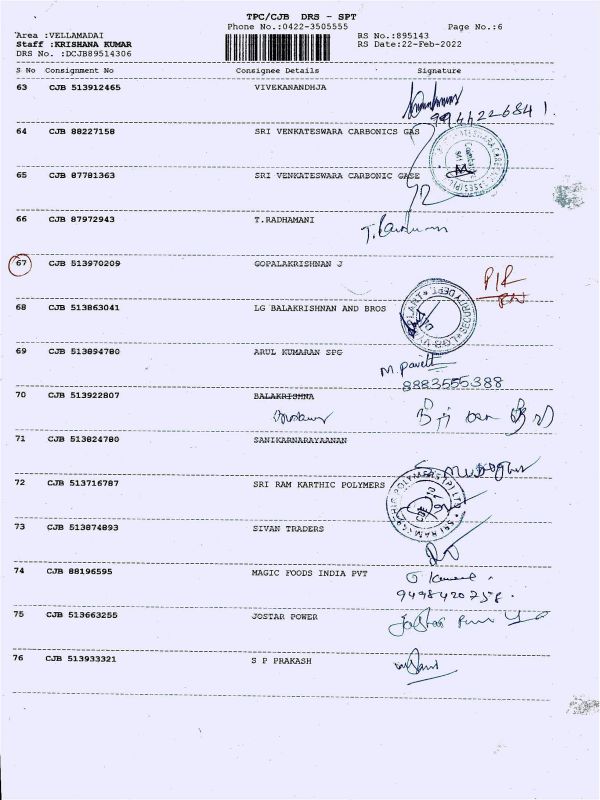 TPC/CJB DRS - SPT
Phone No.:0422-3505555 Page No.:6
Area :VELLAMADAI RS No.:895143
Staff :KRISHANA KUMAR RS Date:22-Feb-2022
DRS No. :DCJB89514306
S No Consignment No Consignee Details Signature
63 CJB 513912465 VIVEKANANDHJA
9944226841.
64 CJB 88227158 SRI VENKATESWARA CARBONICS GAS
65 CJB 87781363 SRI VENKATESWARA CARBONIC GASE
66 CJB 87972943 T.RADHAMANI
67 CJB 513970209 GOPALAKRISHNAN J
68 CJB 513863041 LG BALAKRISHNAN AND BROS
SECURITY DEPT.
69 CJB 513894780 ARUL KUMARAN SPG
8883555388
70 CJB 513922807 BALAKRISMNA
71 CJB 513824780 SANIKARNARAYAANAN
72 CJB 513716787 SRI RAM KARTHIC POLYMERS
73 CJB 513874893 SIVAN TRADERS
74 CJB 88196595 MAGIC FOODS INDIA PVT
9498420758.
75 CJB 513663255 JOSTAR POWER
76 CJB 513933321 S P PRAKASH